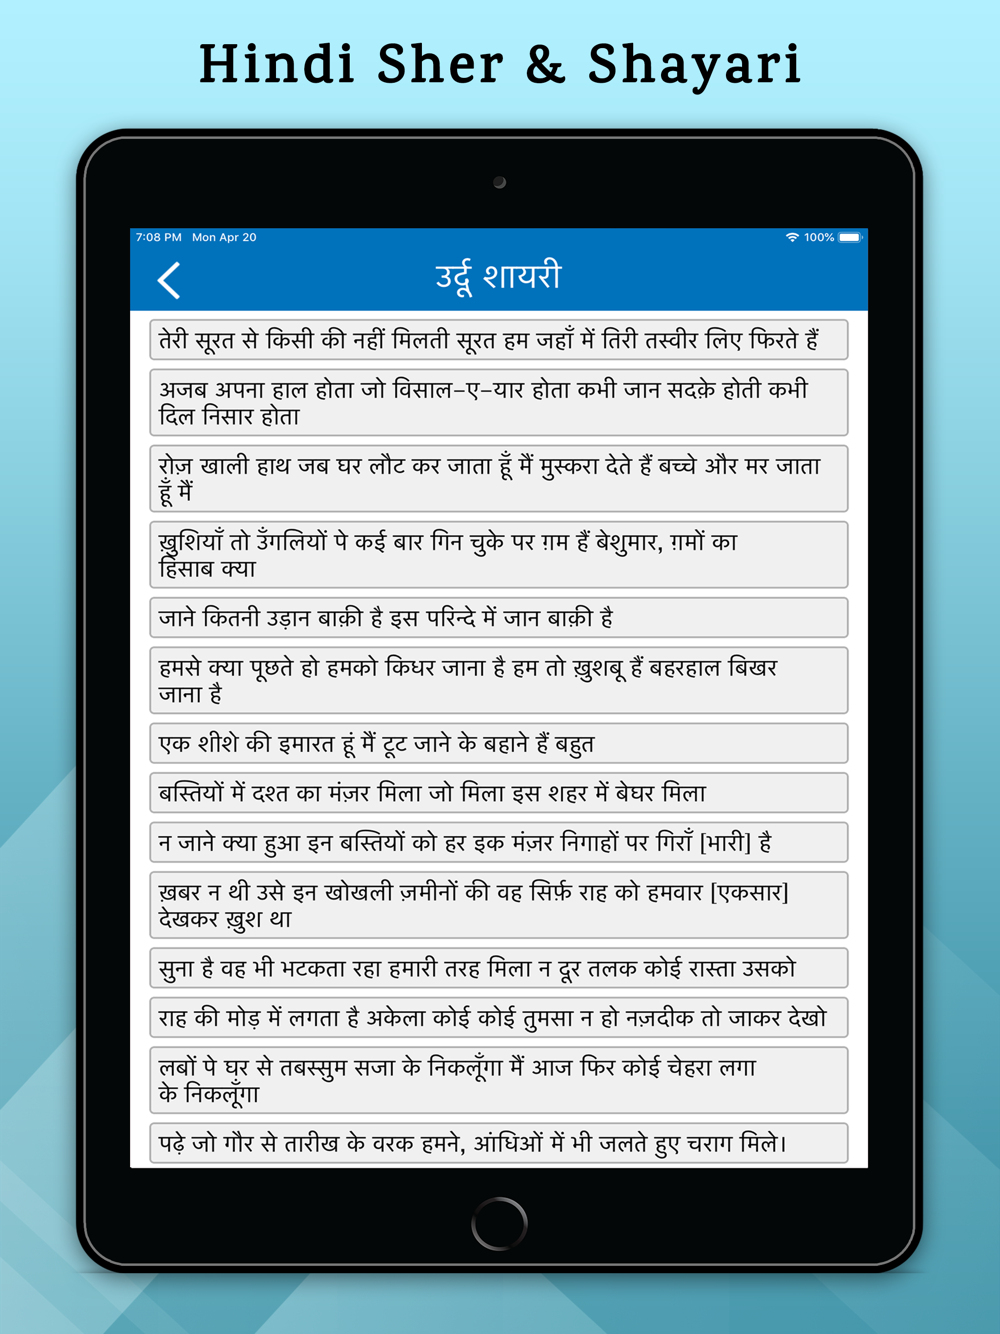 Hindi Sher & Shayari
7:08 PM Mon Apr 20 100%
उर्दू शायरी
तेरी सूरत से किसी की नहीं मिलती सूरत हम जहाँ में तिरी तस्वीर लिए फिरते हैं
अजब अपना हाल होता जो विसाल-ए-यार होता कभी जान सदक़े होती कभी
दिल निसार होता
रोज़ खाली हाथ जब घर लौट कर जाता हूँ मैं मुस्करा देते हैं बच्चे और मर जाता
हूँ मैं
ख़ुशियाँ तो उँगलियों पे कई बार गिन चुके पर ग़म हैं बेशुमार, ग़मों का
हिसाब क्या
जाने कितनी उड़ान बाक़ी है इस परिन्दे में जान बाक़ी है
हमसे क्या पूछते हो हमको किधर जाना है हम तो ख़ुशबू हैं बहरहाल बिखर
जाना है
एक शीशे की इमारत हूं मैं टूट जाने के बहाने हैं बहुत
बस्तियों में दश्त का मंज़र मिला जो मिला इस शहर में बेघर मिला
न जाने क्या हुआ इन बस्तियों को हर इक मंज़र निगाहों पर गिराँ [भारी] है
ख़बर न थी उसे इन खोखली ज़मीनों की वह सिर्फ़ राह को हमवार [एकसार]
देखकर ख़ुश था
सुना है वह भी भटकता रहा हमारी तरह मिला न दूर तलक कोई रास्ता उसको
राह की मोड़ में लगता है अकेला कोई कोई तुमसा न हो नज़दीक तो जाकर देखो
लबों पे घर से तबस्सुम सजा के निकलूँगा मैं आज फिर कोई चेहरा लगा
के निकलूँगा
पढ़े जो गौर से तारीख के वरक हमने, आंधिओं में भी जलते हुए चराग मिले।